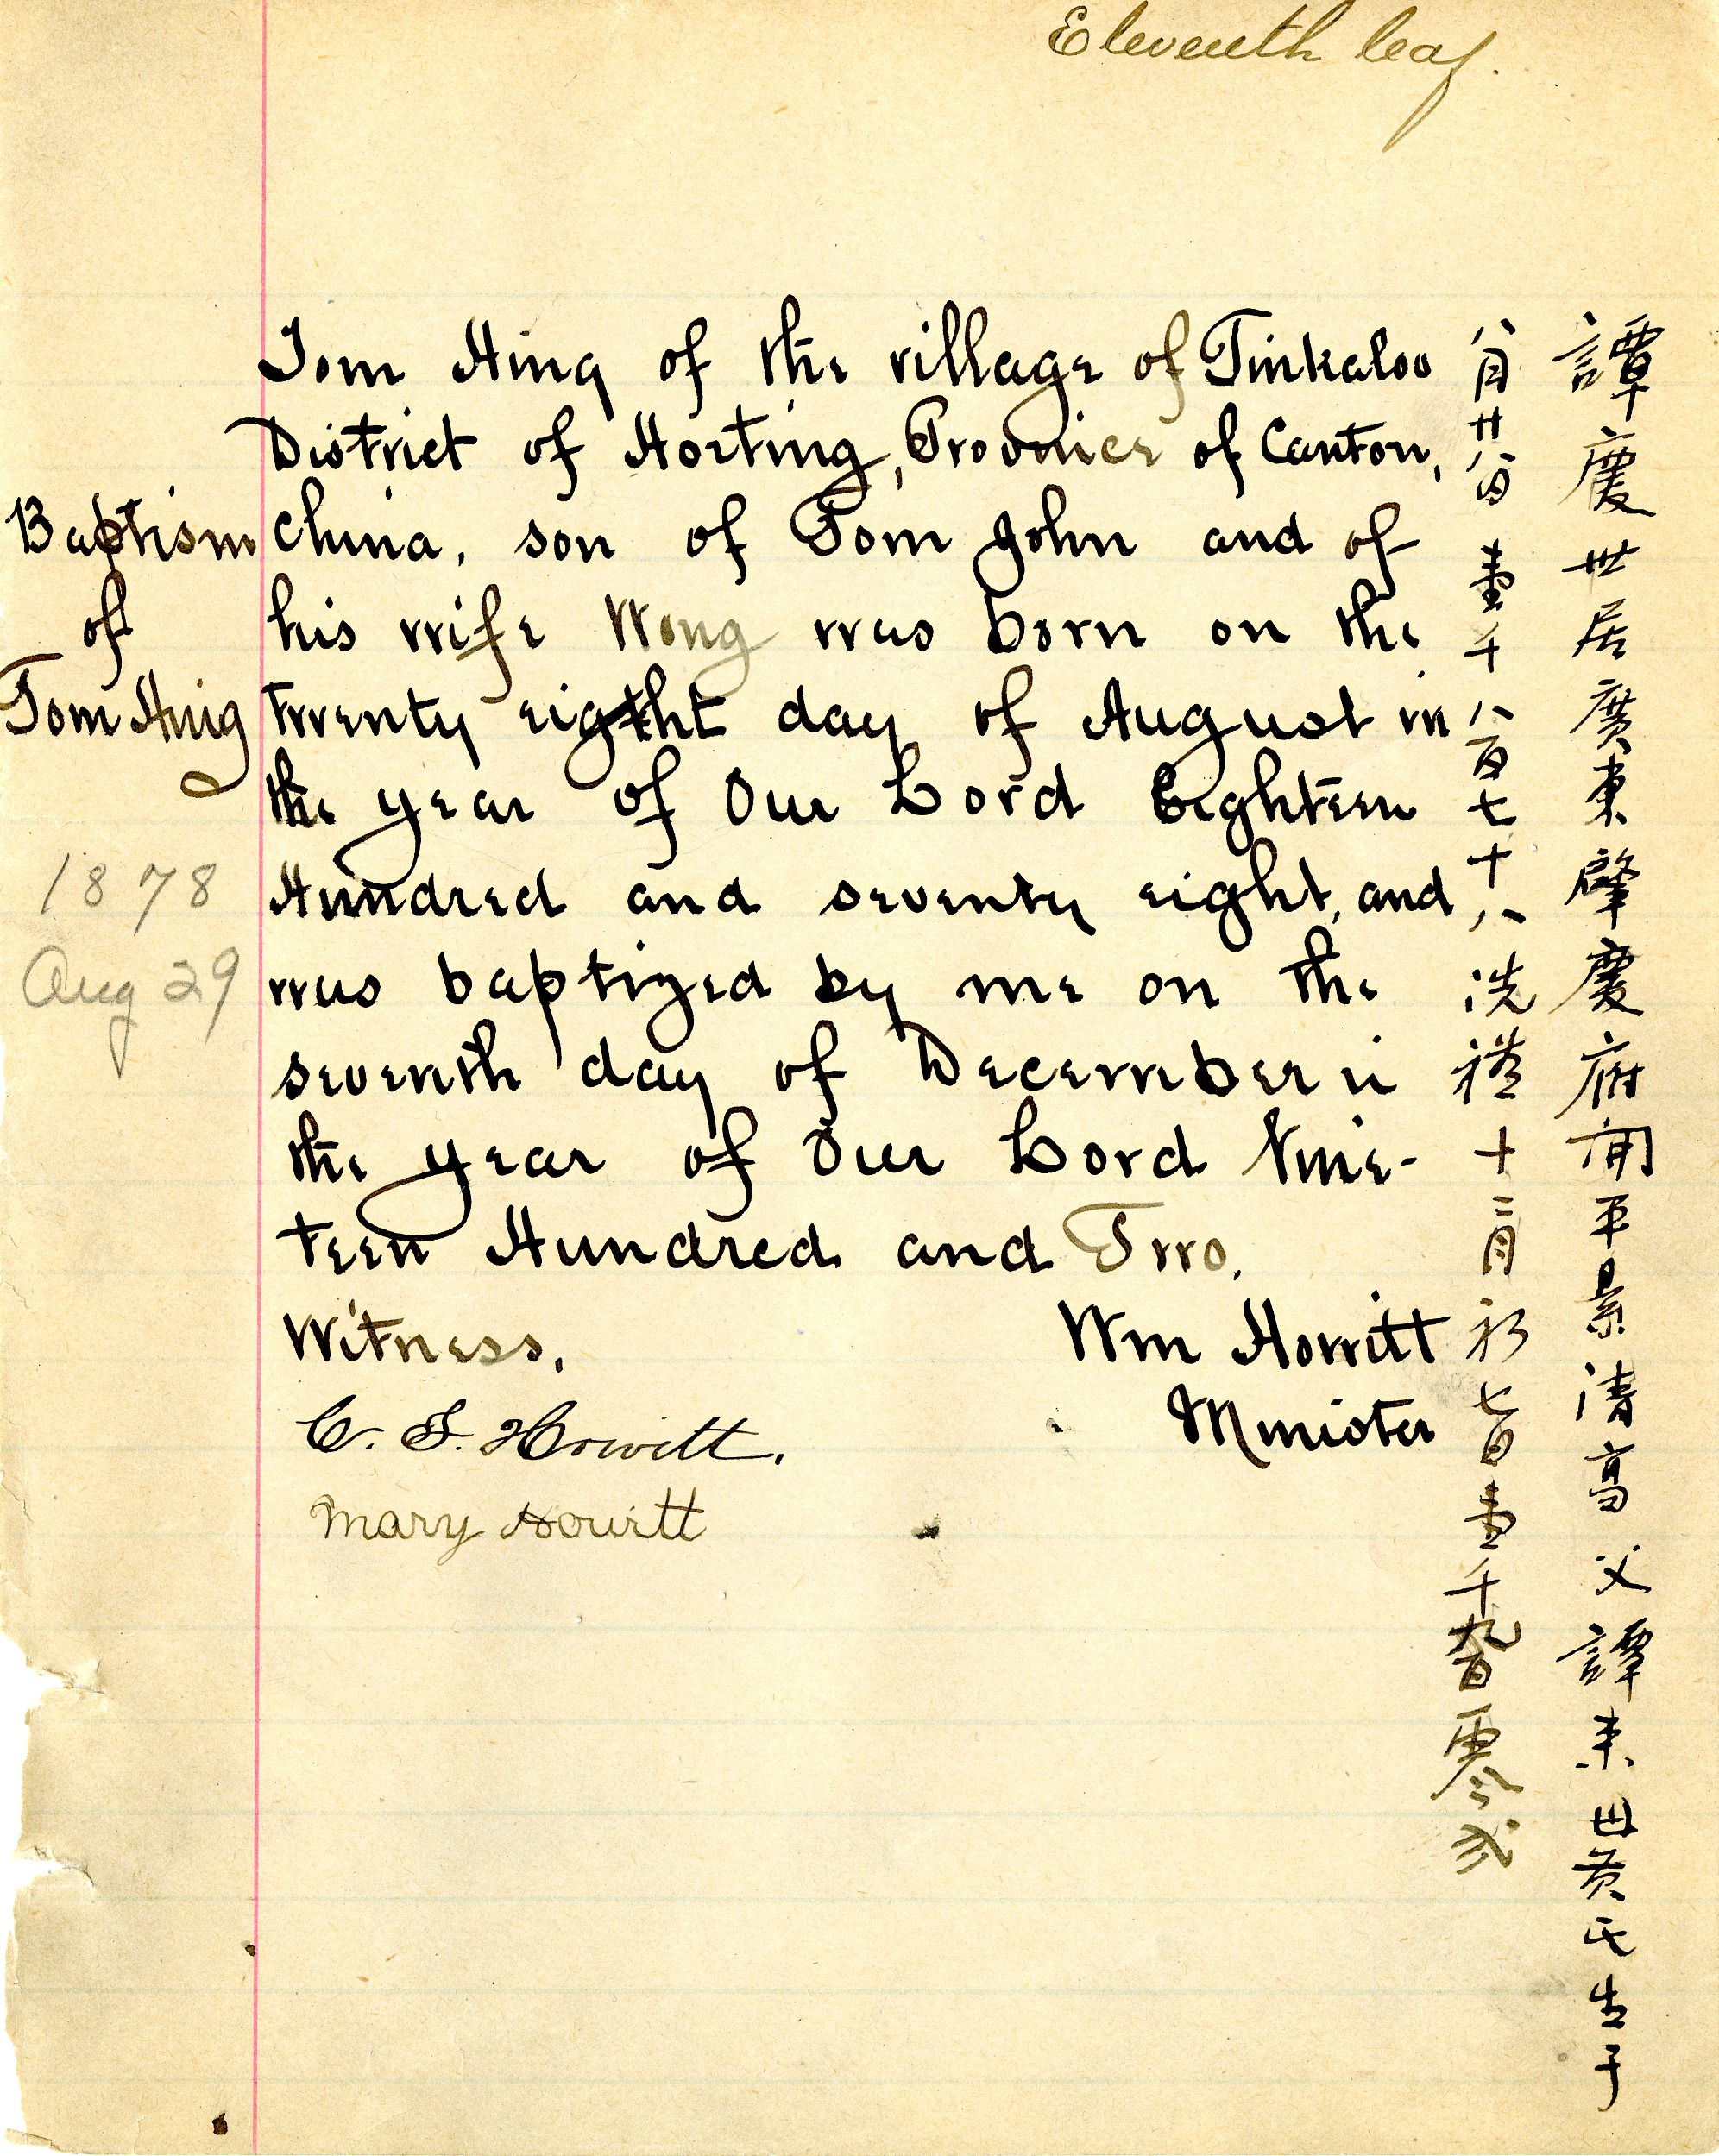 Eleventh leaf.
Tom Hing of the village of Tinkaloo
District of Horting, Province of Canton,
China, son of Tom John and of
his wife Wong was born on the
twenty eighth day of August in
the year of Our Lord Eighteen
Hundred and seventy eight, and
was baptized by me on the
seventh day of December in
the year of Our Lord Nine-
teen Hundred and Two.
Witness.
Wm Howitt
Minister
C. S. Howitt.
Mary Howitt
Baptism
of
Tom Hing
1878
Aug 29
譚慶世居廣東肇慶府開平景清高父譚未田黄氏生于
八月廿八日壹千八百七十八洗禮十二月初七日壹千九百零弍